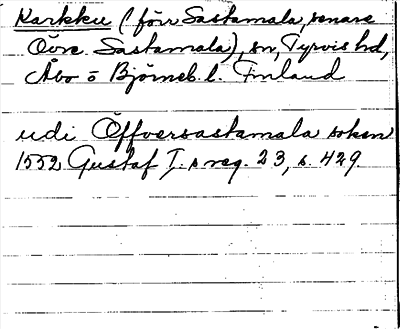 Karkku (förr Sastamala, senare
Övre Sastamala), sn, Tyrvis hd,
Åbo o Björneb. l. Finland
udi Öffversastamala soken
1552 Gustaf I. s reg. 23, s. 429.